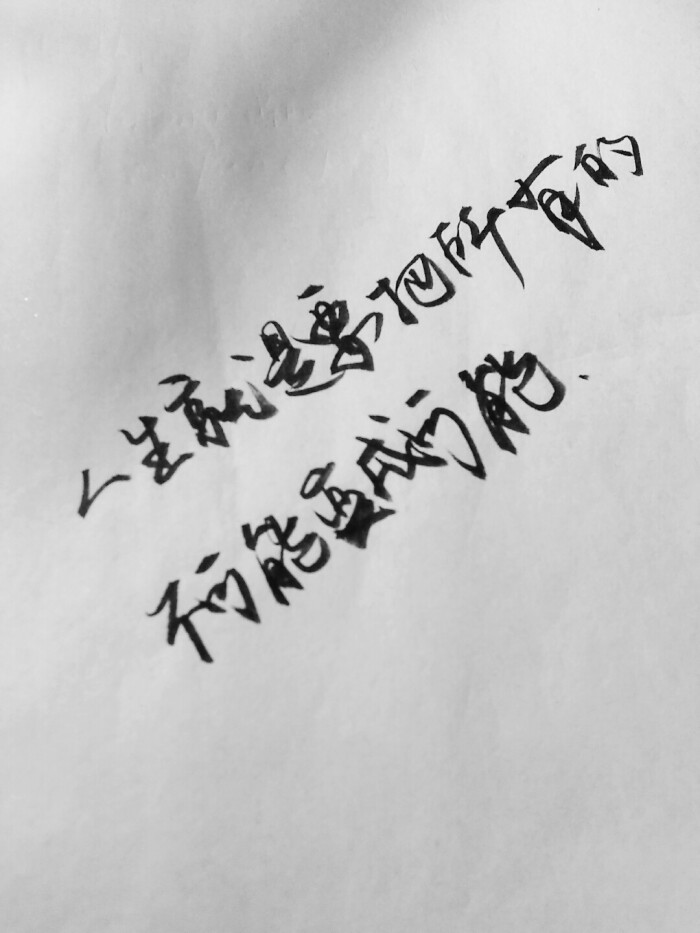 人生就是要把所有的
不可能变成可能.